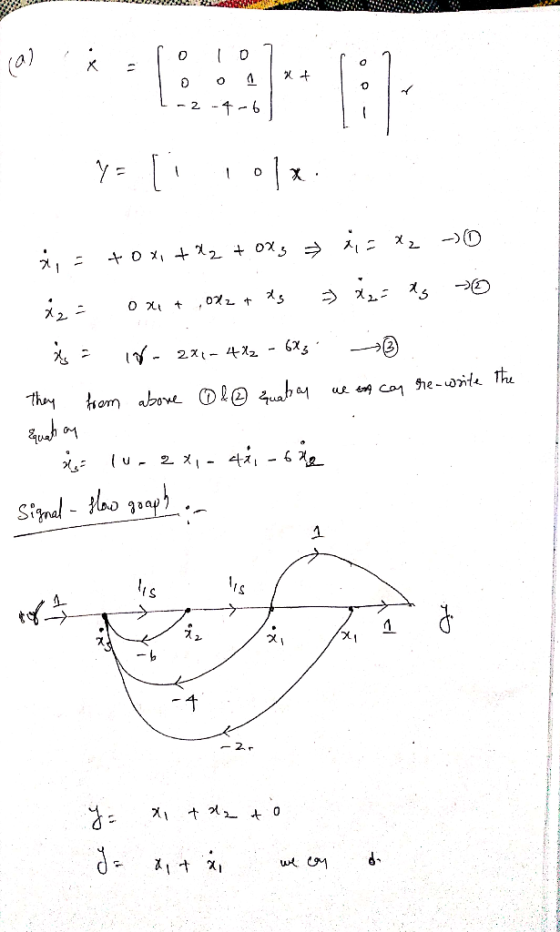 (a) ẋ = [ 0 1 0
0 0 1
-2 -4 -6 ] x + [ 0
0
1 ] r
y = [ 1 1 0 ] x .
ẋ₁ = +0x₁ + x₂ + 0x₃ ⇒ ẋ₁ = x₂ → ①
ẋ₂ = 0x₁ + 0x₂ + x₃ ⇒ ẋ₂ = x₃ → ②
ẋ₃ = 1r - 2x₁ - 4x₂ - 6x₃ → ③
They from above ① & ② we can re-write the
ẋ₃ = 1u - 2x₁ - 4ẋ₁ - 6ẋ₂
Signal - flow graph :-
1
1 1/s 1/s
r ẋ₃ ẋ₂ ẋ₁ x₁ 1 y
-6
-4
-2
y = x₁ + x₂ + 0
y = x₁ + ẋ₁ we can